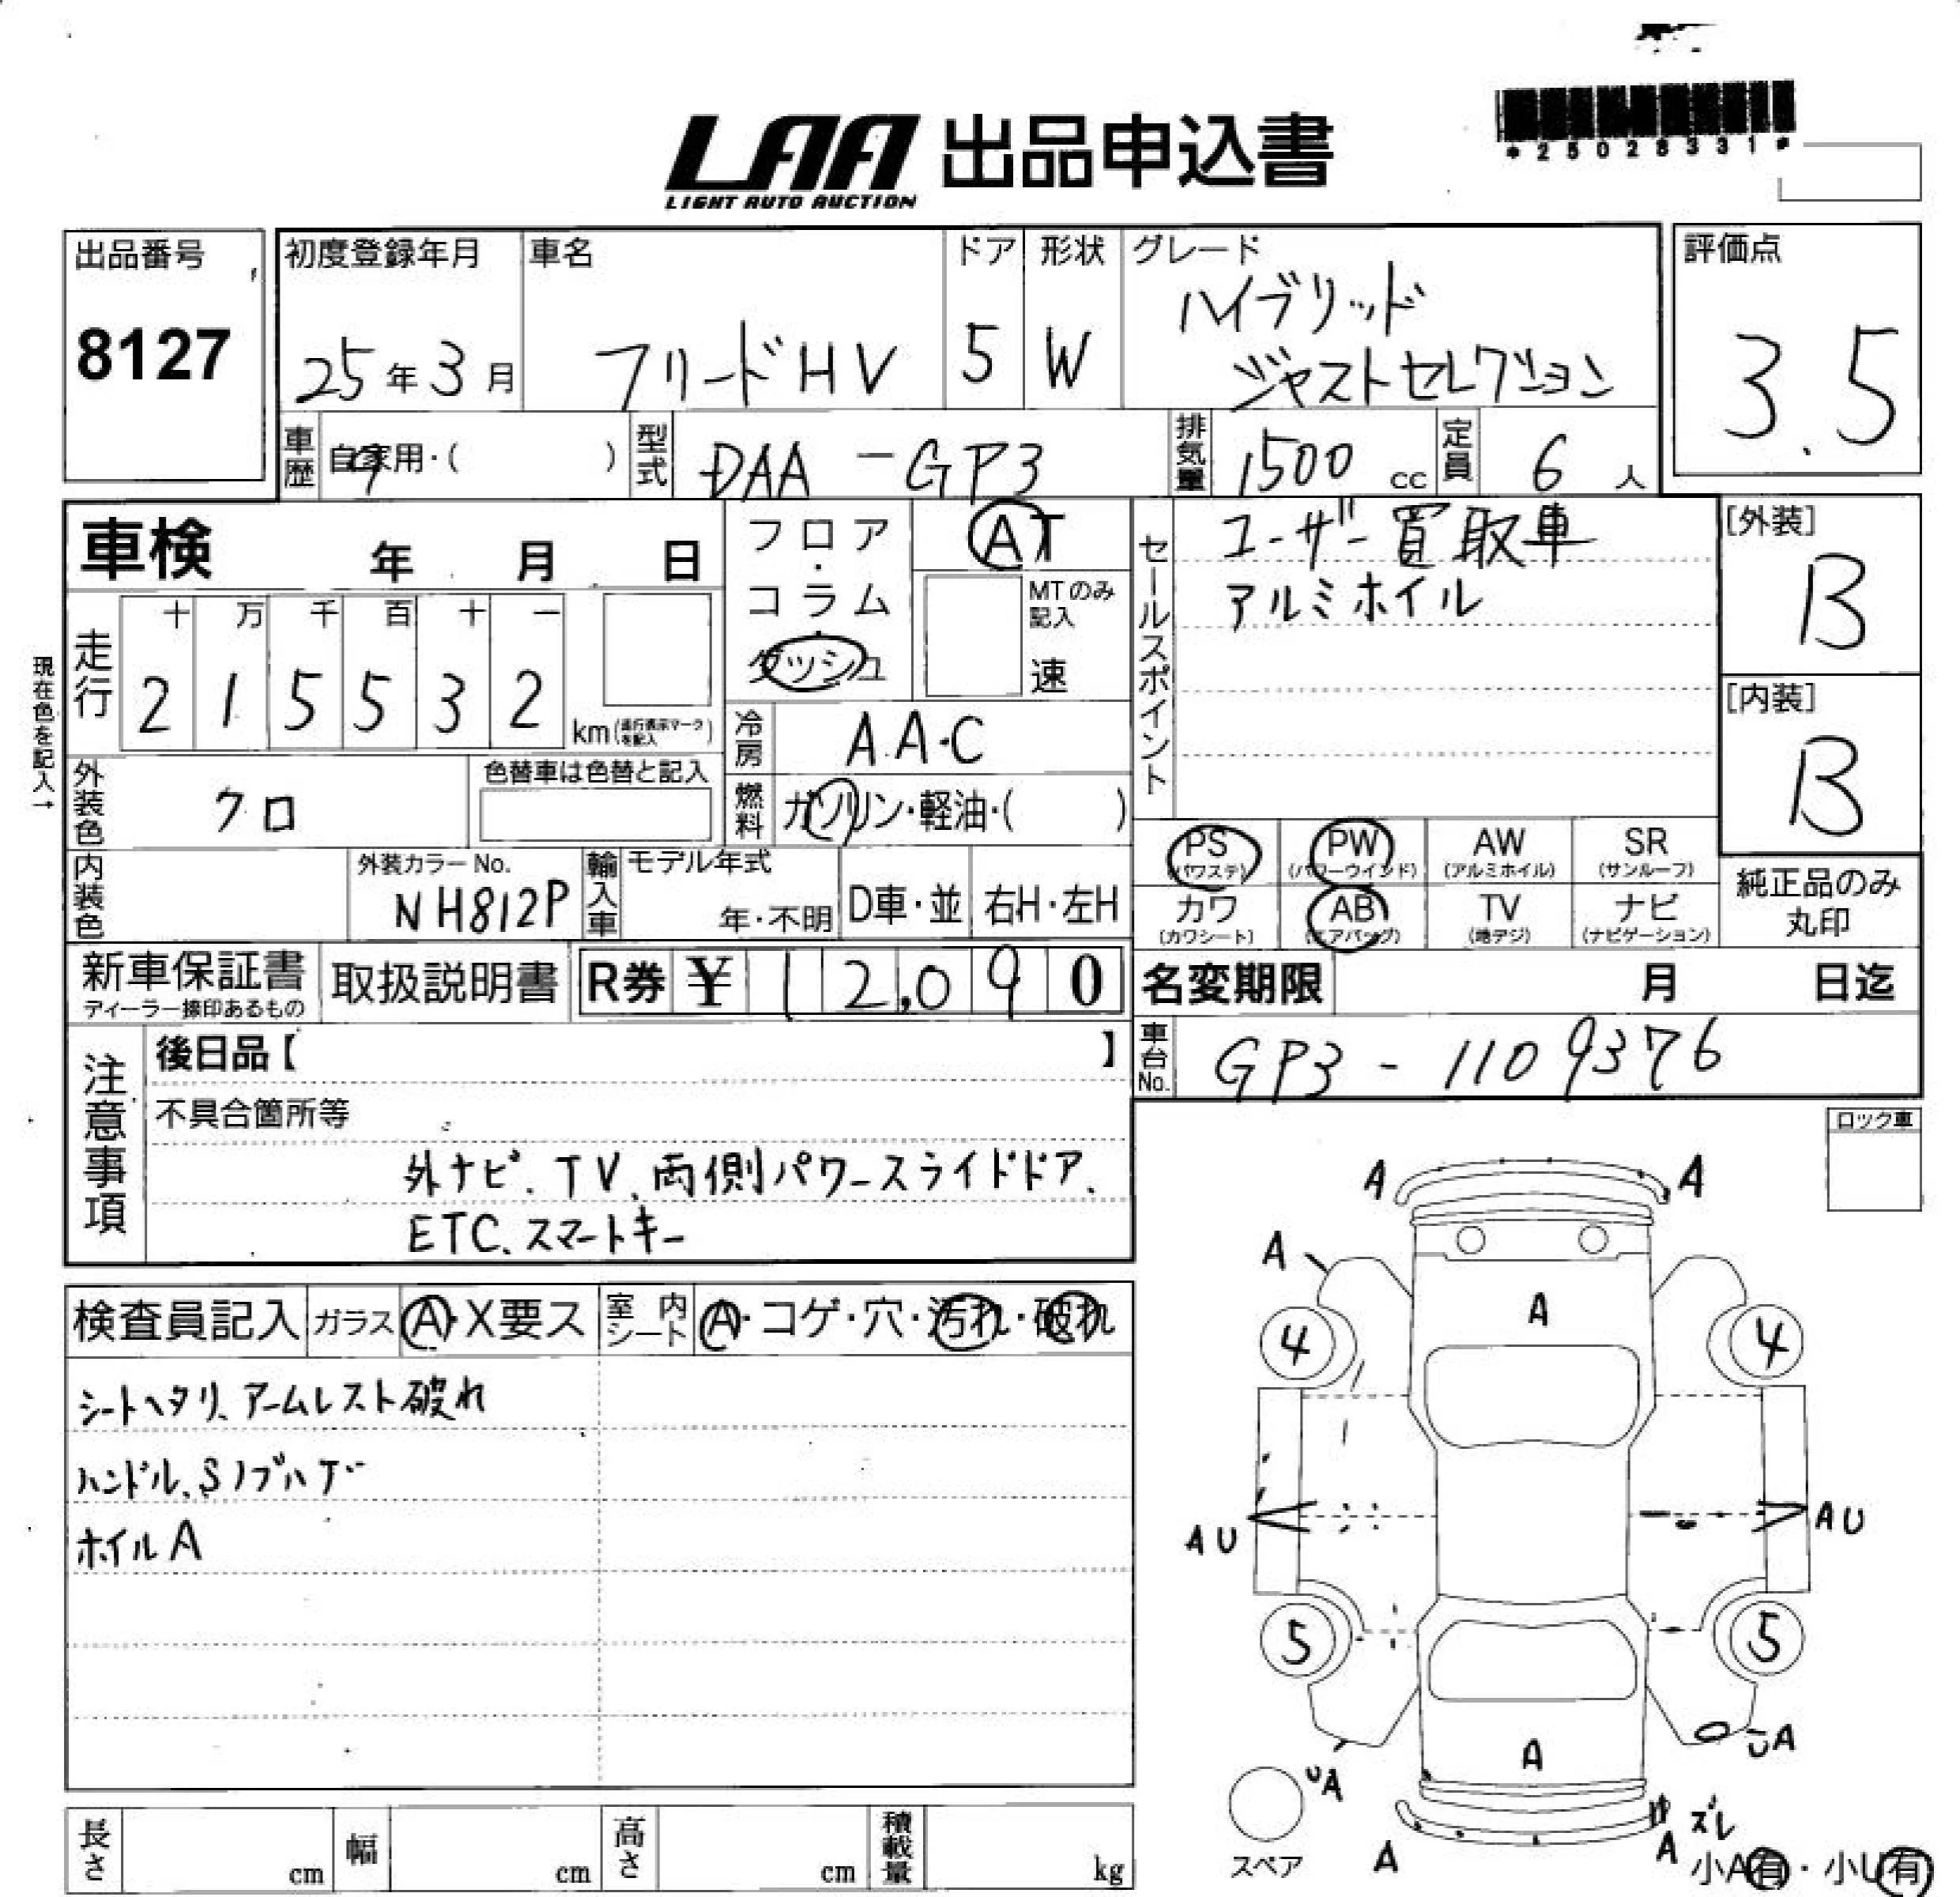 LAA 出品申込書
LIGHT AUTO AUCTION
*25028331*
出品番号
8127
初度登録年月
25年3月
車名
フリードHV
ドア
5
形状
W
グレード
ハイブリッド
ジャストセレクション
評価点
3.5
車歴
自家用・( )
型式
DAA-GP3
排気量
1500 cc
定員
6人
車検 年 月 日
フロア・コラム・ダッシュ
AT
MTのみ記入
速
セールスポイント
ユーザー買取車
アルミホイル
[外装]
B
[内装]
B
現在色を記入→
走行
十 万 千 百 十 一
2 1 5 5 3 2
km(走行表示マークを記入)
冷房
A.A.C
燃料
ガソリン・軽油・( )
外装色
クロ
色替車は色替と記入
内装色
外装カラーNo.
NH812P
輸入車
モデル年式
年・不明
D車・並
右H・左H
PS
(パワステ)
PW
(パワーウインド)
AW
(アルミホイル)
SR
(サンルーフ)
カワ
(カワシート)
AB
(エアバッグ)
TV
(地デジ)
ナビ
(ナビゲーション)
純正品のみ
丸印
新車保証書
ディーラー捺印あるもの
取扱説明書
R券 ¥ 12,090
名変期限 月 日迄
車台No.
GP3-1109376
注意事項
後日品【 】
不具合箇所等
外ナビ.TV、両側パワースライドドア、
ETC、スマートキー
ロック車
検査員記入
ガラス
A・X要ス
室内シート
A・コゲ・穴・汚れ・破れ
シートヘタリ、アームレスト破れ
ハンドル、Sノブハゲ
ホイルA
A A
A
A
4 4
AU AU
5 5
UA
A
UA
ズレ
A A
スペア
小A有・小U有
長さ cm
幅 cm
高さ cm
積載量 kg